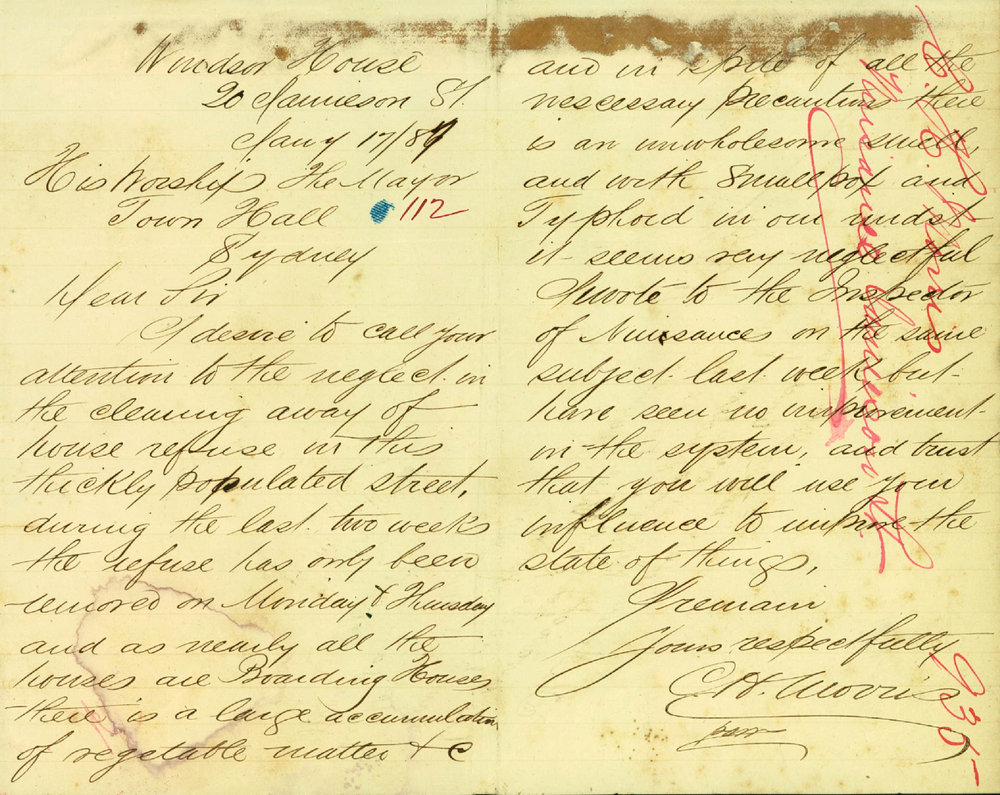 Windsor House
20 Jamieson St.
Jany 17/87
His Worship The Mayor
Town Hall 112
Sydney
Dear Sir
I desire to call your
attention to the neglect in
the clearing away of
house refuse in this
thickly populated street,
during the last two weeks
the refuse has only been
removed on Monday & Thursday
and as nearly all the
houses are Boarding Houses
there is a large accumulation
of vegetable matter & c
and in spite of all the
nescessary precautions there
is an unwholesome smell,
and with Smallpox and
Typhoid in our midst
it seems very neglectful
I wrote to the Inspector
of Nuisances on the same
subject last week but
have seen no improvement
in the system, and trust
that you will use your
influence to improve the
state of things,
I remain
Yours respectfully
E. H. Morris
Morris
Nuisance Jamieson St
935-